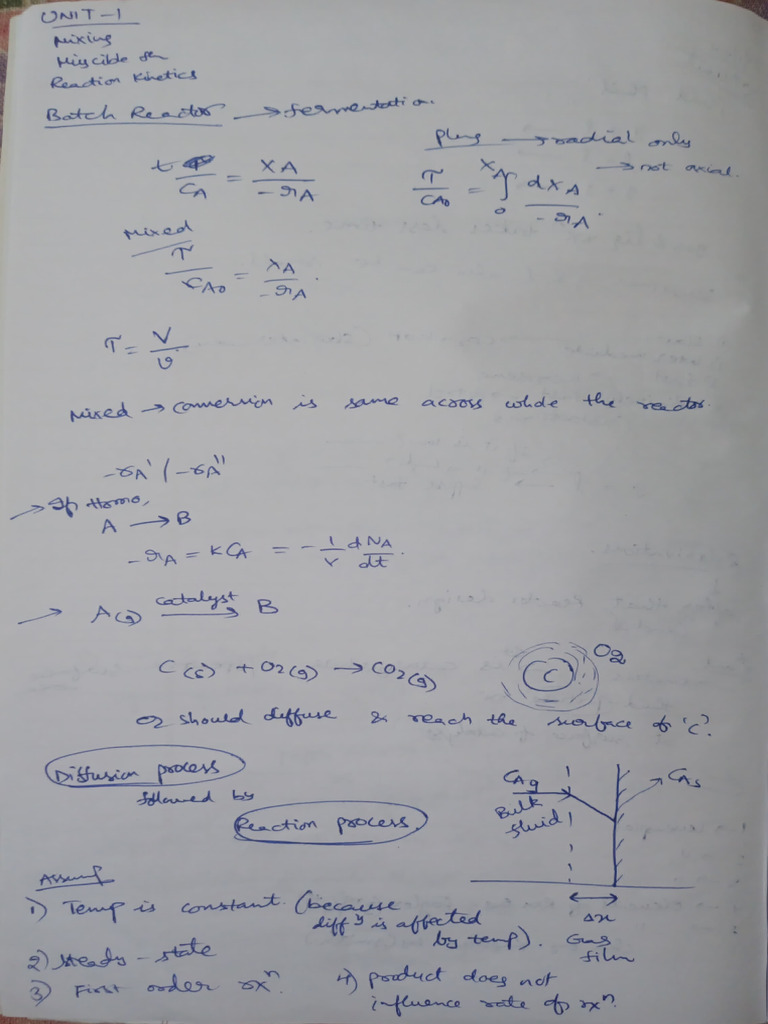 UNIT-1
Mixing
Miscible
Reaction Kinetics
Batch Reactor → fermentation.
plug → radial only
→ not axial.
t / CA = XA / -rA
τ / CA0 = ∫₀^XA dXA / -rA.
Mixed
τ / CA0 = XA / -rA.
τ = V / v
Mixed → conversion is same across whole the reactor.
-rA' / -rA"
→ If Homo,
A → B
-rA = KCA = - 1/V dNA/dt.
→ A(g) catalyst → B
C(s) + O2(g) → CO2(g)
C O2
O2 should diffuse & reach the surface of 'C'.
Diffusion process
followed by
Reaction process.
CAg
Bulk fluid
CAs
Δx
Gas film
Assump
1) Temp is constant. (because diff^y is affected by temp).
2) Steady-state
3) First order rx^n.
4) product does not influence rate of rx^n.